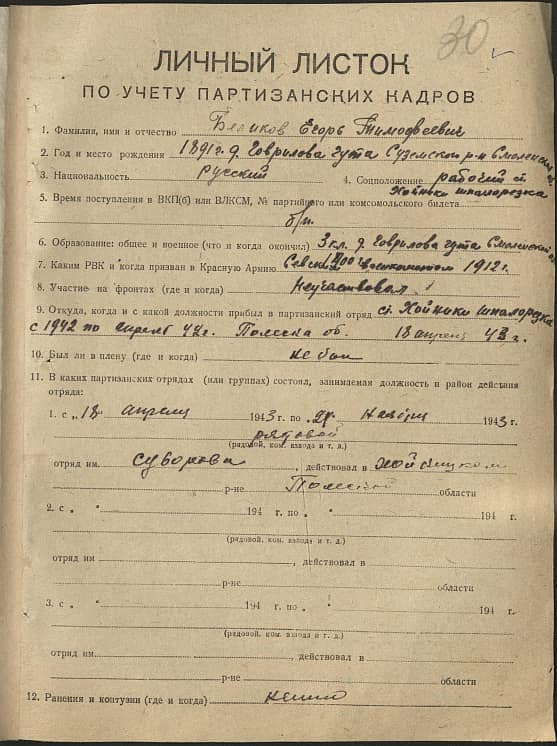 30
ЛИЧНЫЙ ЛИСТОК
ПО УЧЕТУ ПАРТИЗАНСКИХ КАДРОВ
1. Фамилия, имя и отчество Беликов Егорь Тимофеевич
2. Год и место рождения 1891 г. д. Гаврилова гута Суземского р-н Смоленской
3. Национальность русский 4. Соцположение рабочий ст.
Хойники шпалорезка
5. Время поступления в ВКП(б) или ВЛКСМ, № партийного или комсомольского билета
б/п.
6. Образование: общее и военное (что и когда окончил) 3 кл. д. Гаврилова гута Смоленской
7. Каким РВК и когда призван в Красную Армию Севским военкоматом 1912 г.
8. Участие на фронтах (где и когда) Неучаствовал
9. Откуда, когда и с какой должности прибыл в партизанский отряд ст. Хойники шпалорезка
с 1942 по апрель 42 г. Полеска об. 18 апреля 43 г.
10. Был ли в плену (где и когда) не был
11. В каких партизанских отрядах (или группах) состоял, занимаемая должность и район действия
отряда:
1. с „18 апреля 1943 г. по „ ноября 1943 г.
рядовой
(рядовой, ком. взвода и т. д.)
отряд им. Суворова, действовал в Хойницком
р-не Полеской области
2. с „ " 194 г. по „ " 194 г.
(рядовой, ком. взвода и т. д.)
отряд им, действовал в
р-не области
3. с „ " 194 г. по „ " 194 г.
(рядовой, ком. взвода и т. д.)
отряд им., действовал в
р-не области
12. Ранения и контузии (где и когда)